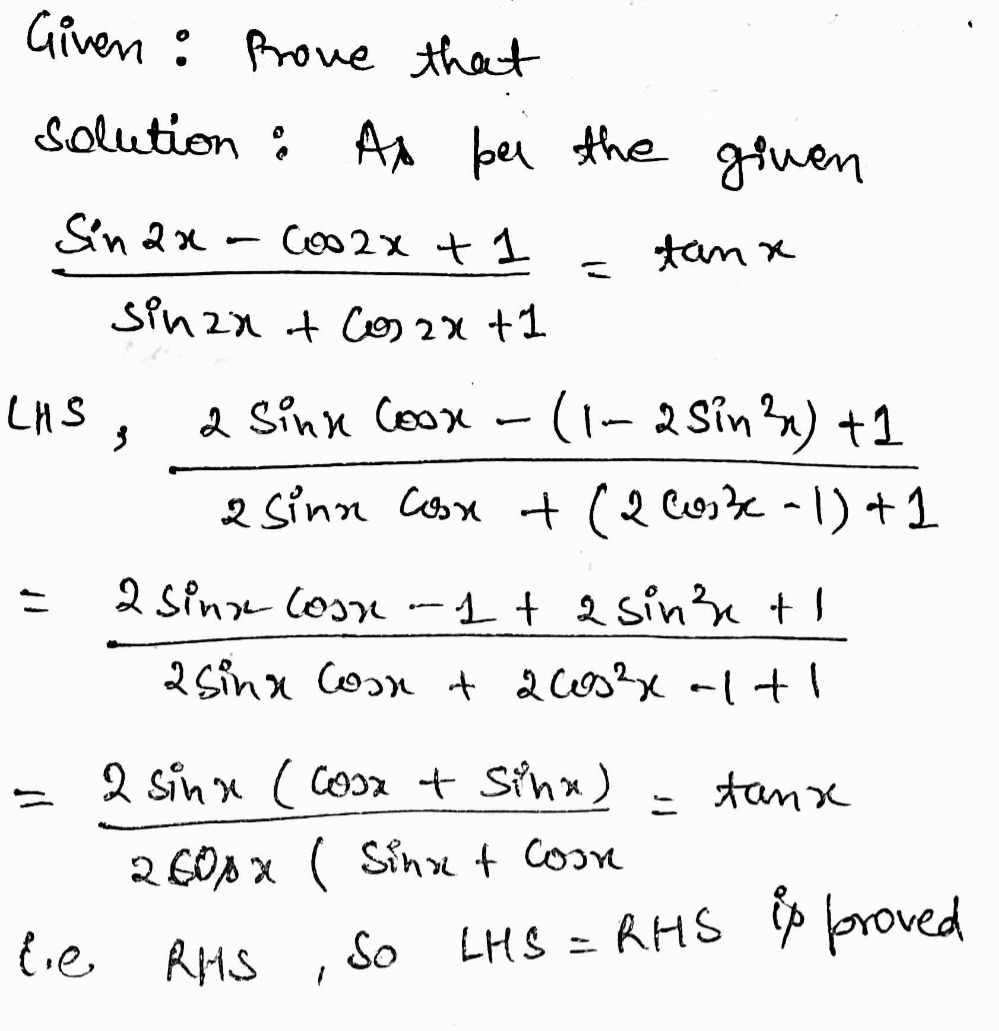 Given : Prove that
Solution : As per the given
Sin 2x - Cos2x + 1 / Sin2x + Cos 2x +1 = tan x
LHS, 2 Sinx Cosx - (1 - 2 Sin²x) +1 / 2 Sinx Cosx + (2 Cos²x - 1) + 1
= 2 Sinx Cosx - 1 + 2 sin²x + 1 / 2 Sinx Cosx + 2 Cos²x - 1 + 1
= 2 Sinx ( Cosx + Sinx ) / 2 Cosx ( Sinx + Cosx = tanx
i.e RHS , So LHS = RHS is proved